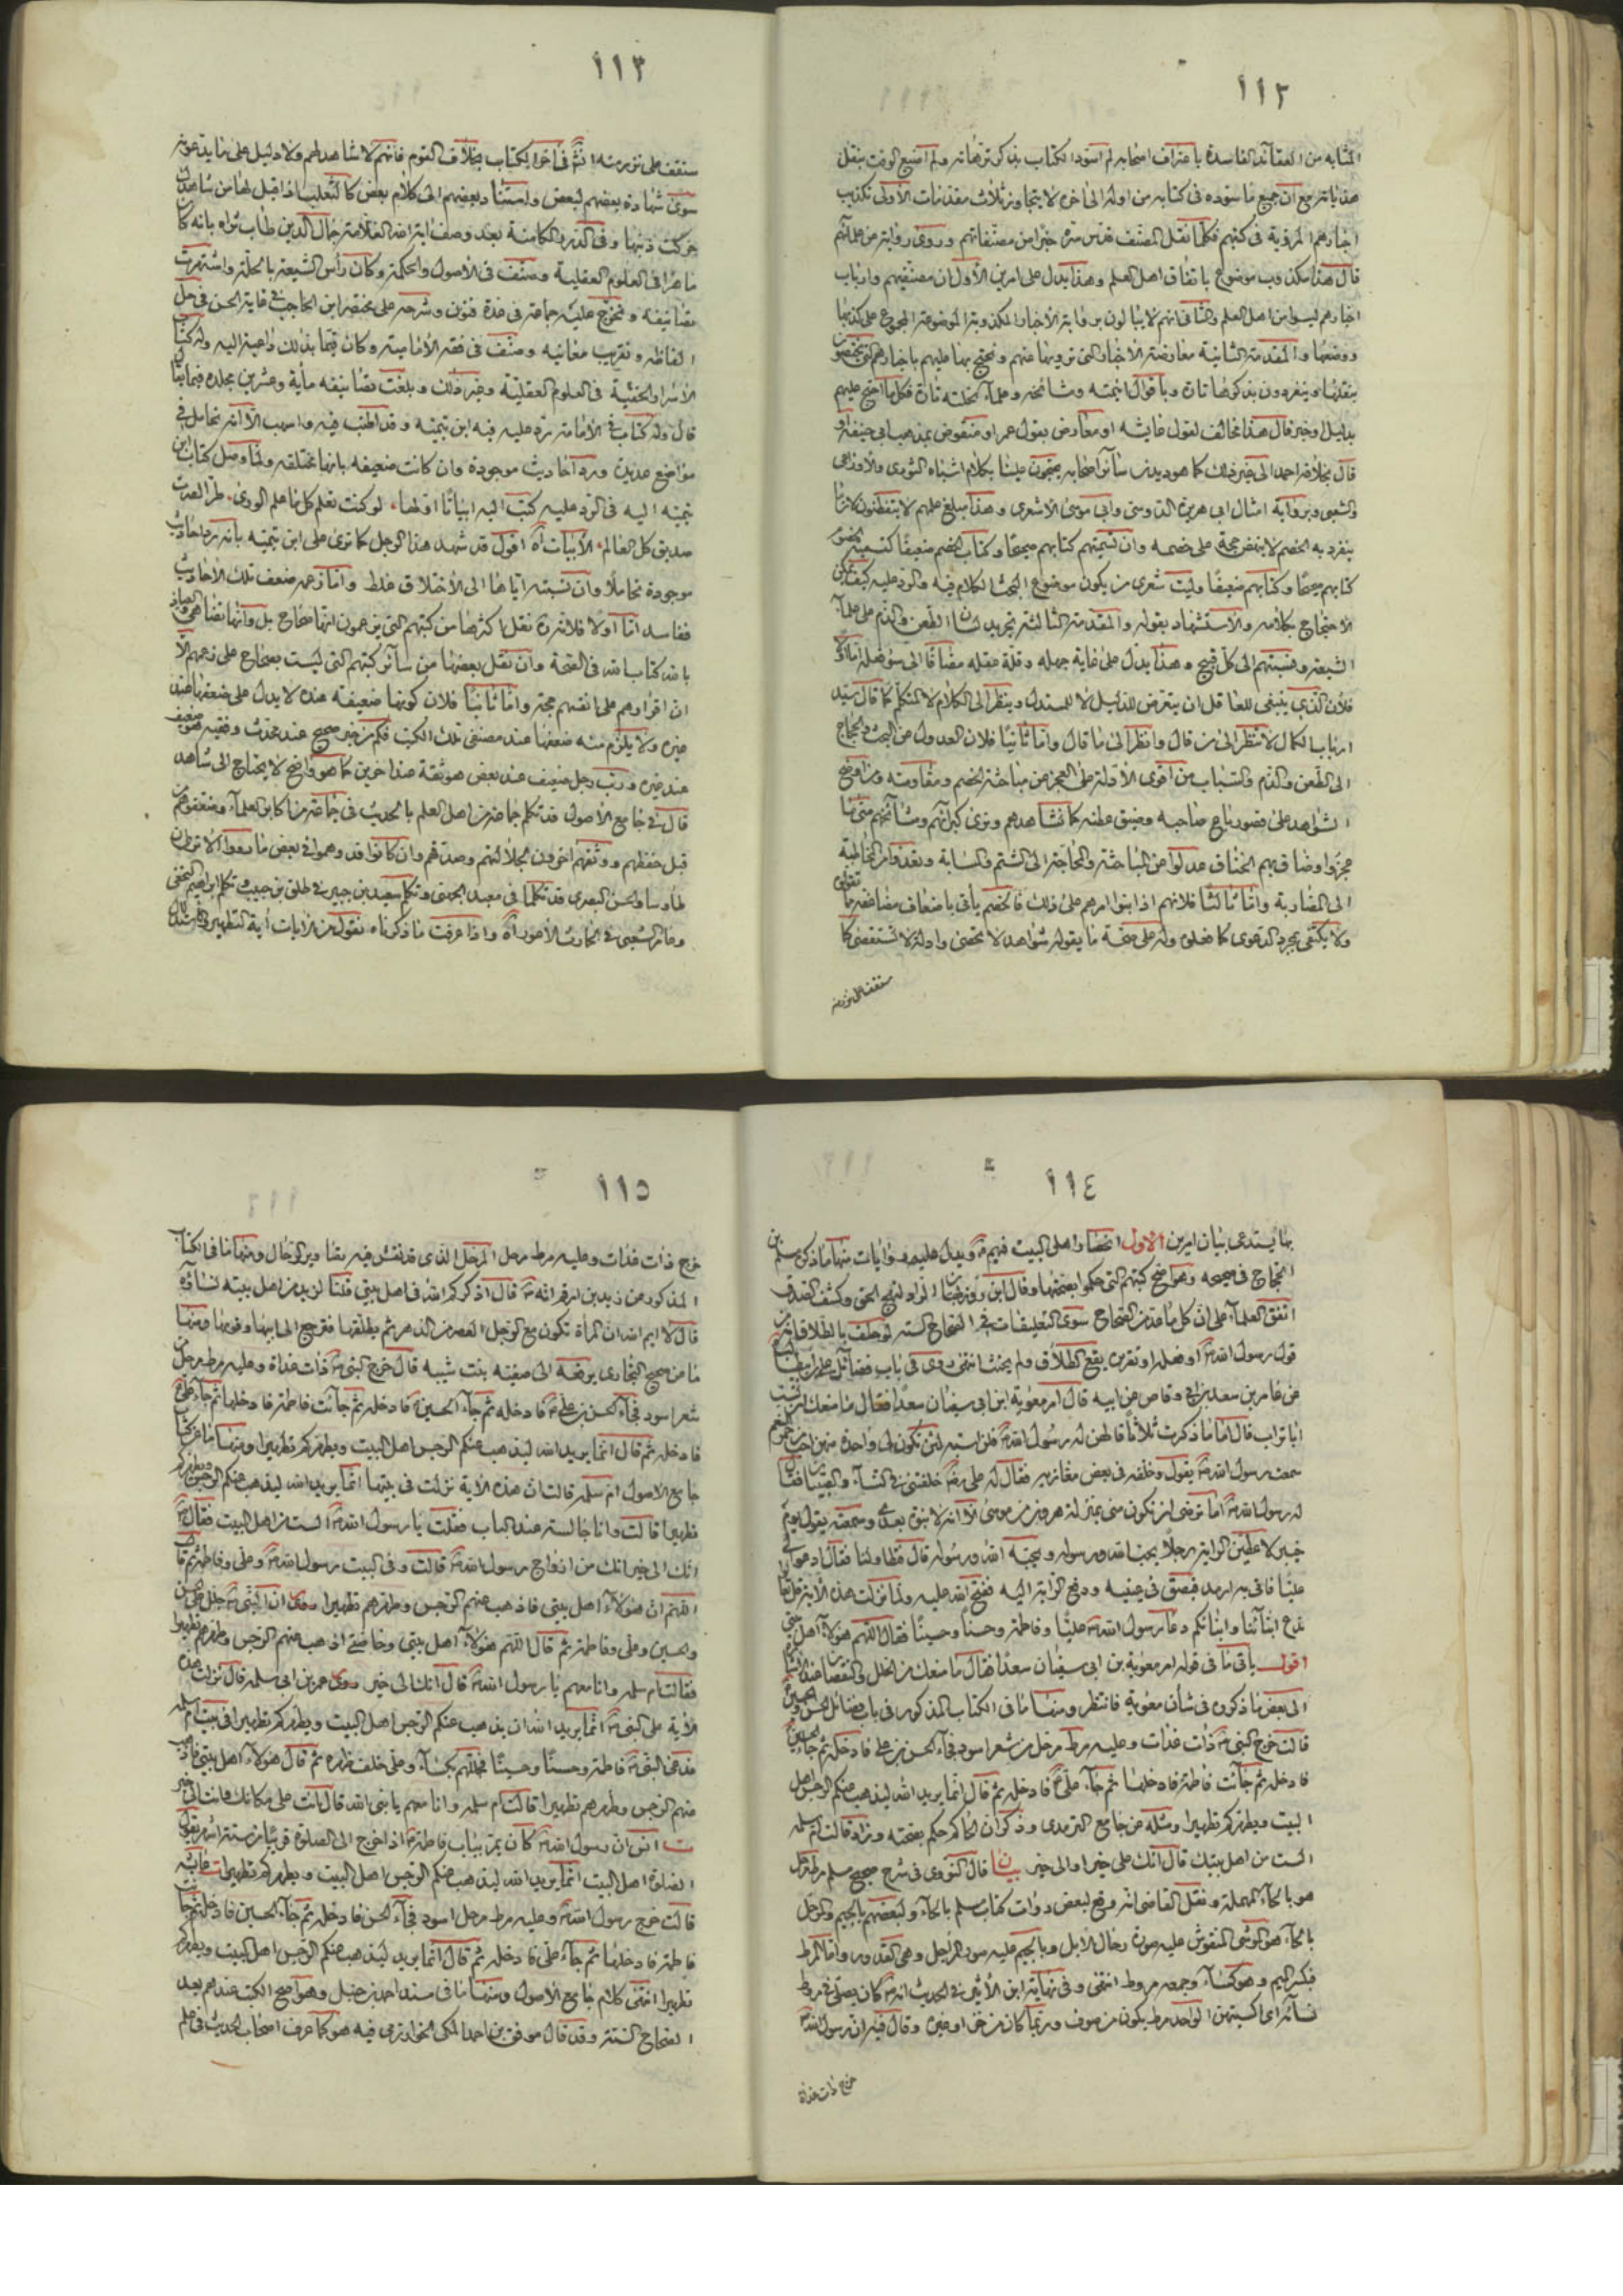 ١١٢
المشابه من العقائد الفاسدة باعتراف اصحابه لم اسود الكتاب بذكر ترهاته ولم اضيع الوقت بنقل
هذياناته مع ان جميع ما سوده فى كتابه من اوله الى اخره لا يتجاوز ثلاث مقدمات الاولى تكذيب
اخبارهم المروية فى كتبهم فكلما نقل المصنف قدس سره خبرا من مصنفاتهم وروى رواية من علمائهم
قال هذا مكذوب موضوع باتفاق اهل العلم وهذا يدل على امرين الأول ان مصنفيهم وارباب
اخبارهم ليسوا من اهل العلم والثانى انهم لا يبالون برواية الأخبار المكذوبة الموضوعة المجموع على كذبها
ووضعها والمقدمة الثانية معارضة الأخبار التى نرويها عنهم ونحتج بها عليهم باخبارهم التى يختصون
بنقلها وينفردون بذكرها تارة وباقوال ائمته ومشائخه وعلماء نحلته تارة فكلما احتج عليهم
بدليل او خبر قال هذا مخالف لقول عايشه او معارض بقول عمر او منقوض بمذهب ابى حنيفة او
قال بخلافه احمد الى غير ذلك كما هو ديدن سائر اصحابه يحتجون علينا بكلام اشباه الثورى والاوزاعى
والشعبى وبرواية امثال ابى هريرة الدوسى وابى موسى الأشعرى وهذا مبلغ علمهم لا يتفطنون لان ما
ينفرد به الخصم لا ينهض حجة على خصمه وان تسميتهم كتابهم صحيحا وكتاب الخصم ضعيفا كتسمية الخصم
كتابهم صحيحا وكتابهم ضعيفا وليت شعرى من يكون موضوع البحث الكلام فيه والرد عليه كيف يمكن
الاحتجاج بكلامه والاستشهاد بقوله والمقدمة الثالثة تجريد لسان الطعن والذم على علماء
الشيعة ونسبتهم الى كل قبيح وهذا يدل على غاية جهله وقلة عقله مضافا الى سوء فعله اما اولا
فلأن الذى ينبغى للعاقل ان يتعرض للدليل لا للمستدل وينظر الى الكلام لا المتكلم كما قال سيد
ارباب الكمال لا تنظر الى من قال وانظر الى ما قال واما ثانيا فلان العدول عن البحث والحجاج
الى الطعن والذم والسباب من اقوى الأدلة على العجز من مباحثة الخصم ومقاومته ومن اوضح
الشواهد على قصور باع صاحبه وضيق عطنه كما نشاهدهم ونرى كبرائهم ومشائخهم متى ما
عجزوا وضاق بهم الخناق عدلوا عن المباحثة والمحاجة الى الشتم والسبابة وتعدوا من المخاطبة
الى المضاربة واما ثالثا فلانهم اذا بنوا امرهم على ذلك فالخصم يأتى باضعاف مضاعفة ما
ولا يكتفى بمجرد الدعوى كما فعلوه وله على صحة ما يقوله شواهد لا تخصى وادلة لا تستقصى كما
ستقف على نزر منه
١١٣
ستقف على نزر منه انشاء فى اخر الكتاب بخلاف القوم فانهم لا شاهد لهم ولا دليل على ما يدعونه
سوى شهادة بعضهم لبعض واستناد بعضهم الى كلام بعض كالثعلب اذا قيل لها من شاهدك
حركت ذنبها وفى الدرر الكامنة بعد وصف اية الله العلامة جمال الدين طاب ثراه بانه كان
ماهرا فى العلوم العقلية وصنف فى الاصول والحكمة وكان رأس الشيعة بالحلة واشتهرت
تصانيفه وتخرج عليه جماعة فى عدة فنون وشرحه على مختصر ابن الحاجب فى غاية الحسن فى حل
الفاظه وتقريب معانيه وصنف فى فقه الأمامية وكان قيما بذلك داعية اليه وله كتاب
الأسرار الخفية فى العلوم العقلية وغير ذلك وبلغت تصانيفه مأية وعشرين مجلدة فيما يقال
قال وله كتاب فى الأمامة رد عليه فيه ابن تيميه وقد اطنب فيه واسهب الا انه تحامل فى
مواضع عديدة ورد احاديث موجودة وان كانت ضعيفه بانها مختلقه ولما وصل كتاب ابن
تيميه اليه فى الرد عليه كتب اليه ابياتا اولها لو كنت تعلم كل ما علم الورى طرا لصرت
صديق كل العالم الأبيات اه اقول قد شهد هذا الرجل كما ترى على ابن تيميه بانه رد احاديث
موجودة تحاملا وان نسبته اياها الى الأختلاق غلط واما زعمه ضعف تلك الأحاديث
ففاسد اما اولا فلانه قد نقل اكثرها من كتبهم التى يزعمون انها صحاح بل وانها تضاهى والعياذ
بالله كتاب الله فى الصحة وان نقل بعضها من سائر كتبهم التى ليست بصحاح على زعمهم الا
ان اقرارهم على انفسهم حجة واما ثانيا فلان كونها ضعيفه عنده لا يدل على ضعفها عند
غيره ولا يلزم منه ضعفها عند مصنفى تلك الكتب فكم من خبر صحيح عند محدث وفقيه هو ضعيف
عند غيره ورب رجل ضعيف عند بعض هو ثقة عند اخرين كما هو واضح لا يحتاج الى شاهد
قال فى جامع الأصول قد تكلم جماعة من اهل العلم بالحديث فى جماعة من اكابر العلماء وضعفوهم من
قبل حفظهم ووثقهم اخرون لجلالتهم وصدقهم وان كانوا قد وهموا فى بعض ما رووا الا ترى ان
طاوسا والحسن البصرى قد تكلما فى معبد الجهنى وتكلم سعيد بن جبير فى طلق بن حبيب وتكلم ابراهيم النخعى
وعامر الشعبى فى الحارث الأعور اه واذا عرفت ما ذكرناه نقول من الايات اية التطهير والاستدلال
١١٤
بها يستدعى بيان امرين الاول اختصار اهل البيت فيهم ويدل عليه روايات منها ما ذكره مسلم بن
الحجاج فى صحيحه وهو اصح كتبهم التى حكموا بصحتها وقال ابن روزبهان الراد لنهج الحق وكشف الصدق
اتفق العلماء على ان كل ما عد من الصحاح سوى التعليقات فى الصحاح الستة لو حلف بالطلاق انه من
قول رسول الله او فعله او تقريره يقع الطلاق ولم يحنث انتهى روى فى باب فضائل على بن ابيطالب
عن عامر بن سعد بن ابى وقاص عن ابيه قال امر معوية ابن ابى سفيان سعدا فقال ما منعك ان تسب
ابا تراب قال اما ما ذكرت ثلاثا قالهن له رسول الله فلن اسبه لئن تكون لى واحدة منهن احب الى من حمر النعم
سمعت رسول الله يقول وخلفه فى بعض مغازيه فقال له على خلفتنى فى النساء والصبيان فقال
له رسول الله اما ترضى ان تكون منى بمنزلة هرون من موسى الا انه لا نبوة بعدى وسمعته يقول يوم
خيبر لاعطين الراية رجلا يحب الله ورسوله ويحبه الله ورسوله قال فتطاولنا فقال ادعوا لى
عليا فاتى به ارمد فبصق فى عينيه ودفع الراية اليه ففتح الله عليه ولما نزلت هذه الأية قل تعالوا
ندع ابنائنا وابنائكم دعا رسول الله عليا وفاطمة وحسنا وحسينا فقال اللهم هؤلاء اهل بيتى
اقول يأتى ما فى قوله امر معوية بن ابى سفيان سعدا فقال ما منعك من الخلل والنقصان عند الأشارة
الى بعض ما ذكروه فى شأن معوية فانتظر ومنها ما فى الكتاب المذكور فى باب فضائل الحسن والحسين
قالت خرج النبى ذات غدات وعليه مرط مرحل من شعر اسود فجاء الحسن بن على فادخله ثم جاء الحسين
فادخله ثم جائت فاطمة فادخلها ثم جاء على فادخله ثم قال انما يريد الله ليذهب عنكم الرجس اهل
البيت ويطهركم تطهيرا ومثله عن جامع الترمدى وذكر ان الحاكم حكم بصحته وزاد قالت ام سلمه
الست من اهل بيتك قال انك على خير او الى خير بيان قال النووى فى شرح صحيح مسلم مرط مرحل
هو بالحاء المهملة ونقل القاضى انه وقع لبعض روات كتاب مسلم بالحاء ولبعضهم بالجيم والمرحل
بالحاء هو الموشى المنقوش عليه صورة رحال الابل وبالجيم عليه صور المراجل وهى القدور واما المرط
فبكسر الميم وهو كساء وجمعه مروط انتهى وفى نهاية ابن الأثير فى الحديث انه كان يصلى فى مروط
نسائه اى اكسيتهن الواحد مرط يكون من صوف وربما كان من خز او غيره وقال فيه ان رسول الله
خرج ذات غداة
١١٥
خرج ذات غدات وعليه مرط مرحل المرحل الذى قد نقش فيه تصاوير الرحال ومنها ما فى الكتاب
المذكور عن زيد بن ارقم انه قال اذكركم الله فى اهل بيتى قلنا لزيد من اهل بيته نساؤه
قال لا ايم الله ان المرأة تكون مع الرجل العصر من الدهر ثم يطلقها فترجع الى ابيها وقومها ومنها
ما من صحيح البخارى يرفعه الى صفيه بنت شيبه قال خرج النبى ذات غداة وعليه مرط مرحل من
شعر اسود فجاء الحسن بن على فادخله ثم جاء الحسين فادخله ثم جائت فاطمة فادخلها ثم جاء على
فادخله ثم قال انما يريد الله ليذهب عنكم الرجس اهل البيت ويطهركم تطهيرا ومنها ما عن كتاب
جامع الاصول ام سلمه قالت ان هذه الاية نزلت فى بيتها انما يريد الله ليذهب عنكم الرجس ويطهركم
تطهيرا قالت وانا جالسة عند الباب فقلت يا رسول الله الست من اهل البيت فقال
انك الى خير انك من ازواج رسول الله قالت وفى البيت رسول الله وعلى وفاطمة ثم قال
اللهم ان هؤلاء اهل بيتى فاذهب عنهم الرجس وطهرهم تطهيرا وفى ان النبى جلل على حسن
والحسين وعلى وفاطمة ثم قال اللهم هؤلاء اهل بيتى وخاصتى اذهب عنهم الرجس وطهرهم تطهيرا
فقالت ام سلمه وانا معهم يا رسول الله قال انك الى خير وروى عمر بن ابى سلمه قال نزلت هذه
الأية على النبى انما يريد الله ان يذهب عنكم الرجس اهل البيت ويطهركم تطهيرا فى بيت ام سلمه
فدعى النبى فاطمة وحسنا وحسينا فجللهم بكساء وعلى خلف ظهره ثم قال هؤلاء اهل بيتى فاذهب
عنهم الرجس وطهرهم تطهيرا قالت ام سلمه وانا معهم يا نبى الله قال انت على مكانك وانت الى خير
ت انس ان رسول الله كان يمر بباب فاطمة اذا خرج الى الصلوة قريبا من ستة اشهر يقول
الصلوة اهل البيت انما يريد الله ليذهب عنكم الرجس اهل البيت ويطهركم تطهيرا عايشه
قالت خرج رسول الله وعليه مرط مرحل اسود فجاء الحسن فادخله ثم جاء الحسين فادخله ثم جائت
فاطمة فادخلها ثم جاء على فادخله ثم قال انما يريد ليذهب عنكم الرجس اهل البيت ويطهركم
تطهيرا انتهى كلام جامع الأصول ومنها ما فى مسند احمد بن حنبل وهو اصح الكتب عندهم بعد
الصحاح الستة وقد قال موفق بن احمد المكى الخوارزمى فيه هو كما عرف اصحاب الحديث فى علم